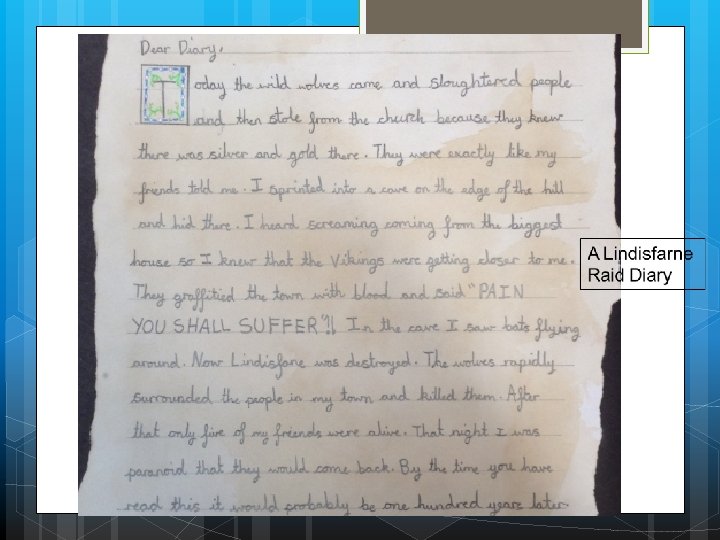 Dear Diary,
Today the wild wolves came and sloughtered people
and then stole from the church because they knew
there was silver and gold there. They were exactly like my
friends told me. I sprinted into a cave on the edge of the hill
and hid there. I heard screaming coming from the biggest
house so I knew that the Vikings were getting closer to me.
They graffitied the town with blood and said "PAIN
YOU SHALL SUFFER"!! In the cave I saw bats flying
around. Now Lindisfane was destroyed. The wolves rapidly
surrounded the people in my town and killed them. After
that only five of my friends were alive. That night I was
paranoid that they would come back. By the time you have
read this it would probably be one hundred years later.
A Lindisfarne
Raid Diary